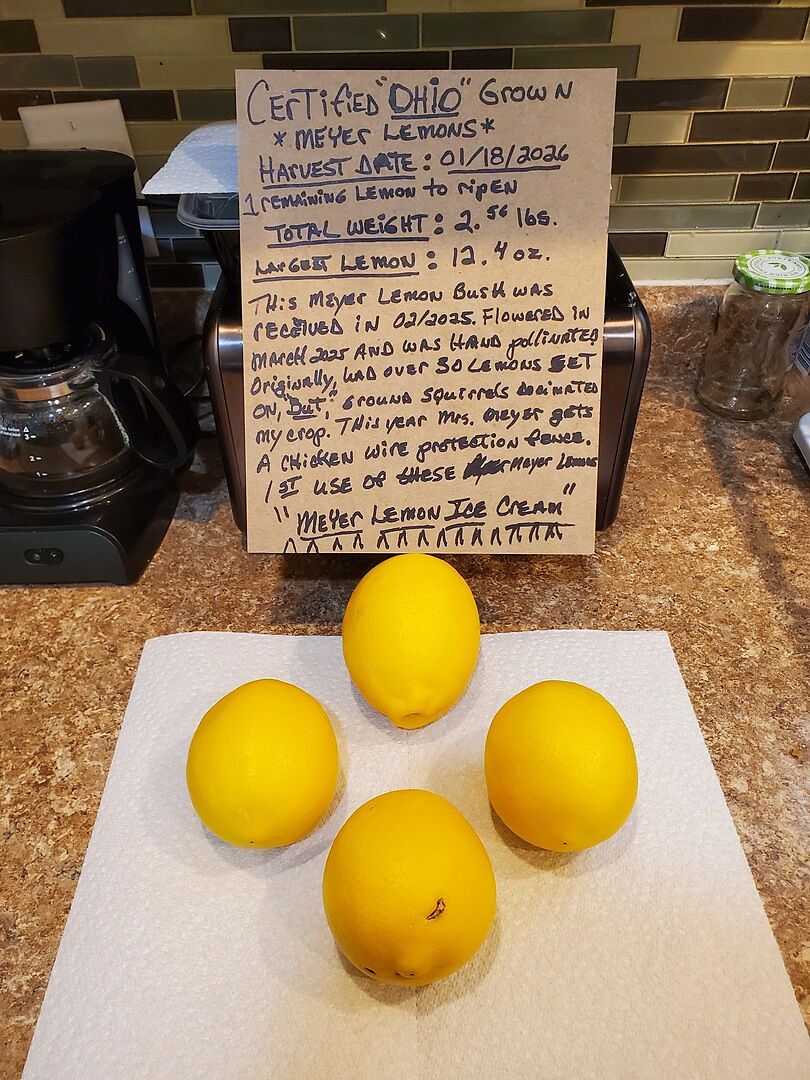 CERTiFiED "OHiO" GROWN
*MEYER LEMONS*
HARVEST DATE: 01/18/2026
1 REMAiNiNG LEMON to RiPEN
TOTAL WEiGHT: 2.56 lbs.
LARGEST LEMON: 12.4 oz.
THis MEYER LEMON BUSH WAS
RECEiVED iN 02/2025. FlowERED iN
MARCH 2025 AND WAS HAND pollinATED
ORiginAlly, HAD OVER 30 LEMONS SET
ON, "But," GROUND SQUiRRELS DECiMATED
my CROP. THis yEAR MRS. MEYER gEts
A CHiCKEN WiRE PROTECTION FENCE.
1ST USE OF tHESE MEYER LEMONS
"MEYER LEMON ICE CREAM"